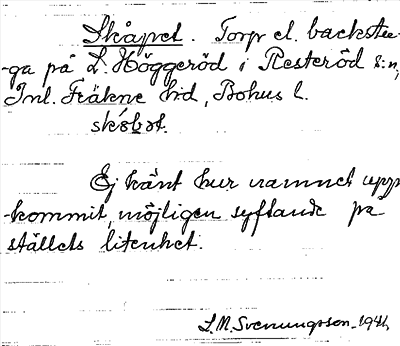 Skåpet. Torp el. backstu-
ga på L. Höggeröd i Resteröd s:n,
Inl. Fräkne hd, Bohus l.
Ej känt hur namnet upp-
kommit, möjligen syftande på
ställets litenhet.
L.M. Svenungsson. 1941